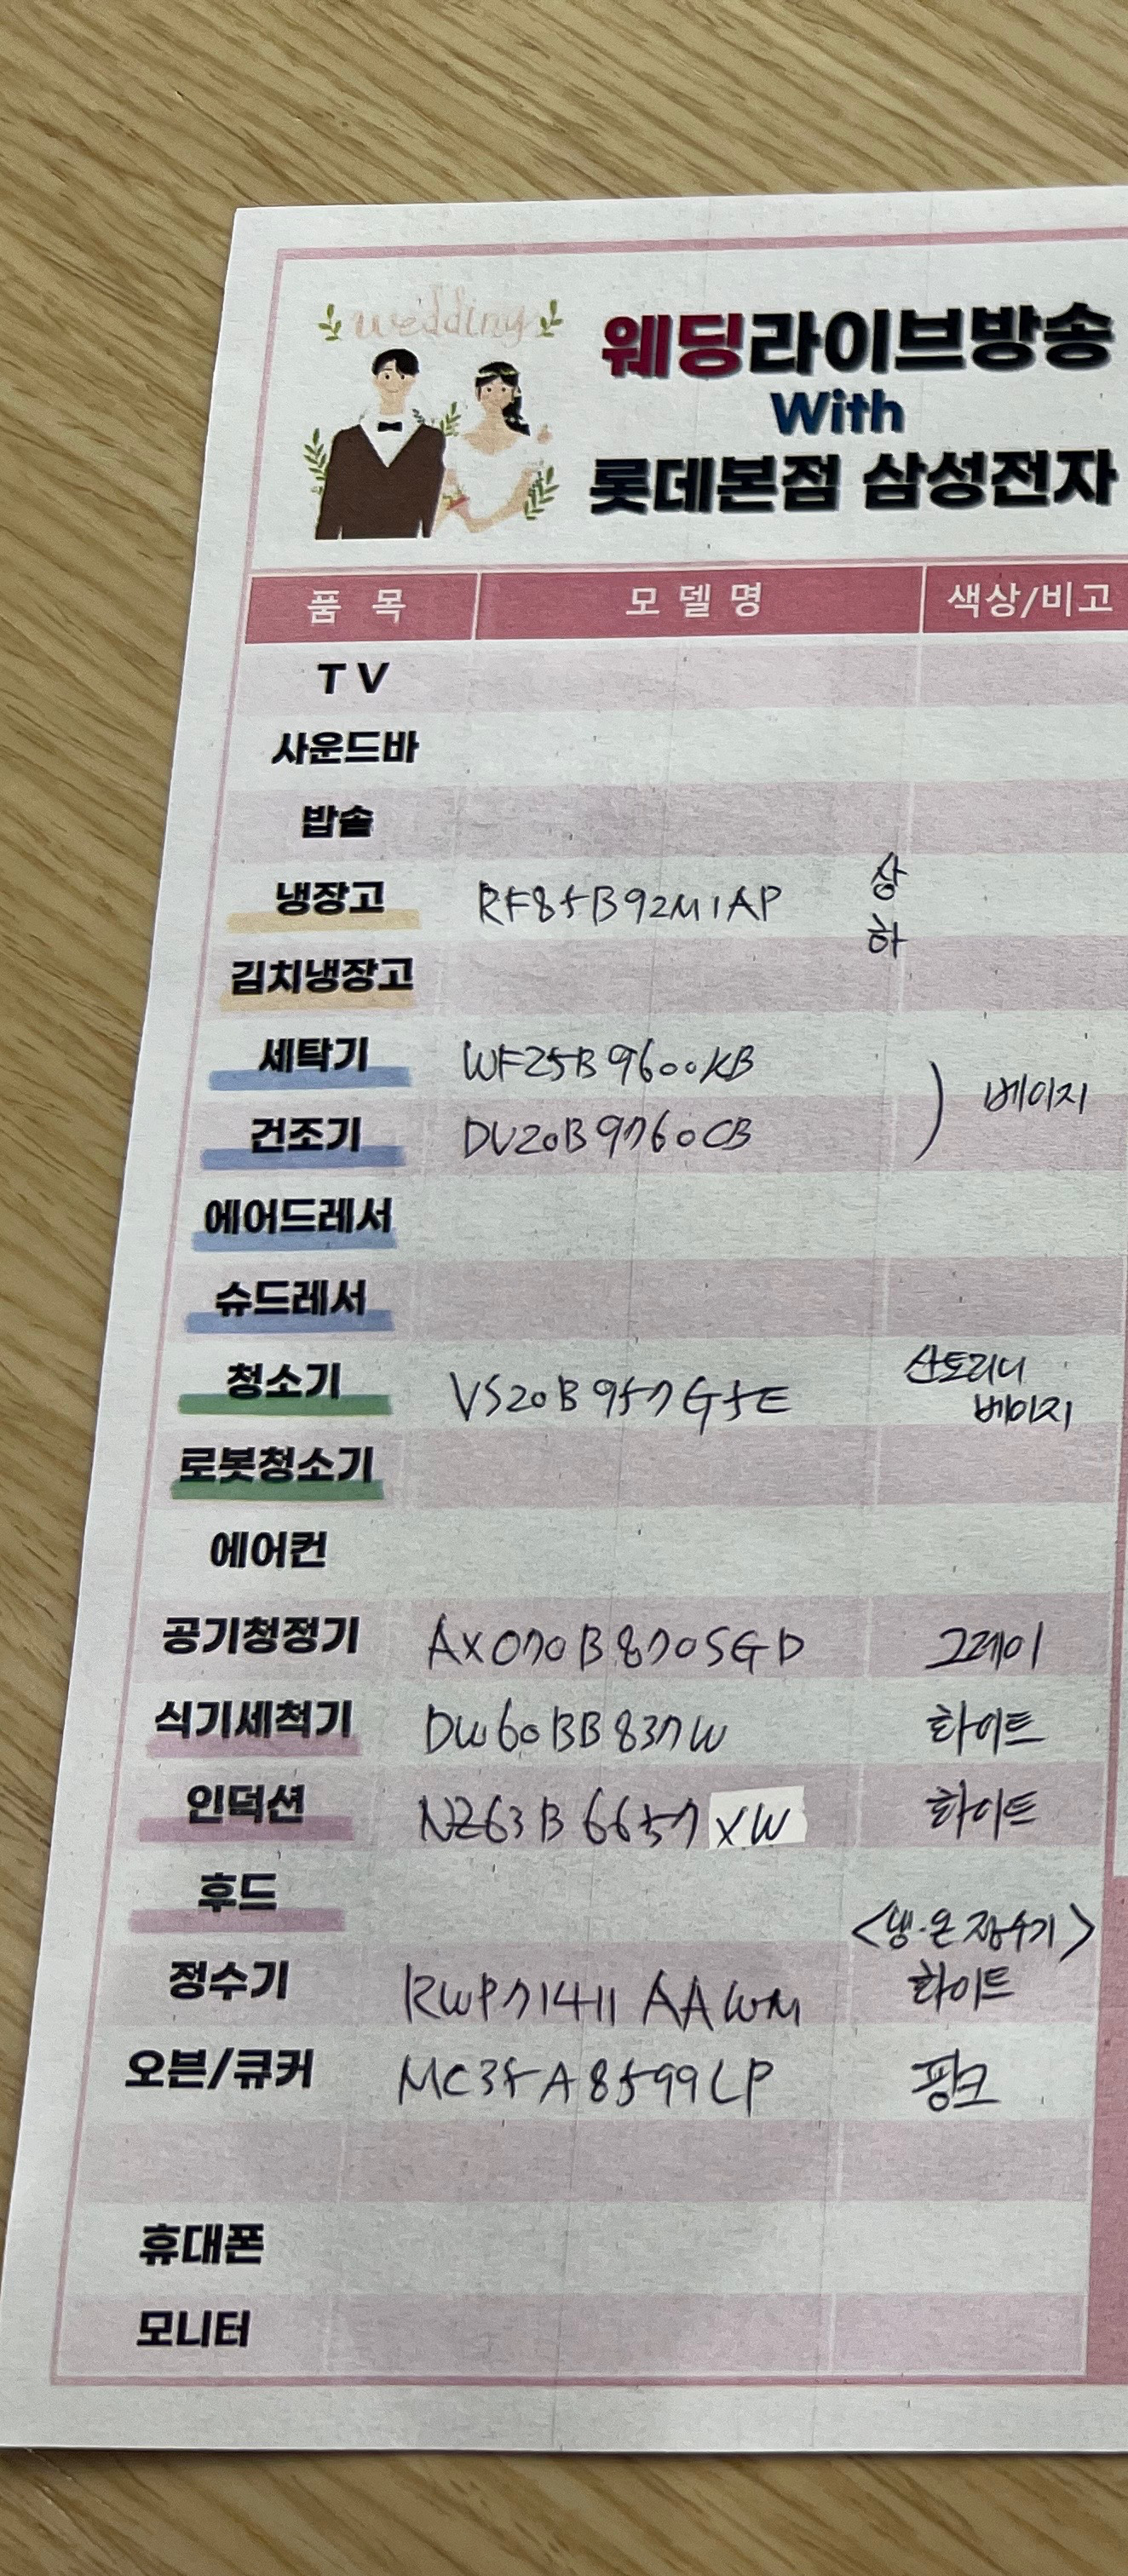 wedding
웨딩라이브방송
With
롯데본점 삼성전자
품 목 모 델 명 색상/비고
T V
사운드바
밥솥
냉장고 RF85B92M1AP 상
하
김치냉장고
세탁기 WF25B9600KB
건조기 DV20B9760CB ) 베이지
에어드레서
슈드레서
청소기 VS20B957G5E 산토리니
베이지
로봇청소기
에어컨
공기청정기 AX070B870SGD 그레이
식기세척기 DW60BB837W 화이트
인덕션 NZ63B6657XW 화이트
후드
<냉·온정수기>
정수기 RWP71411AAWM 화이트
오븐/큐커 MC35A8599LP 핑크
휴대폰
모니터